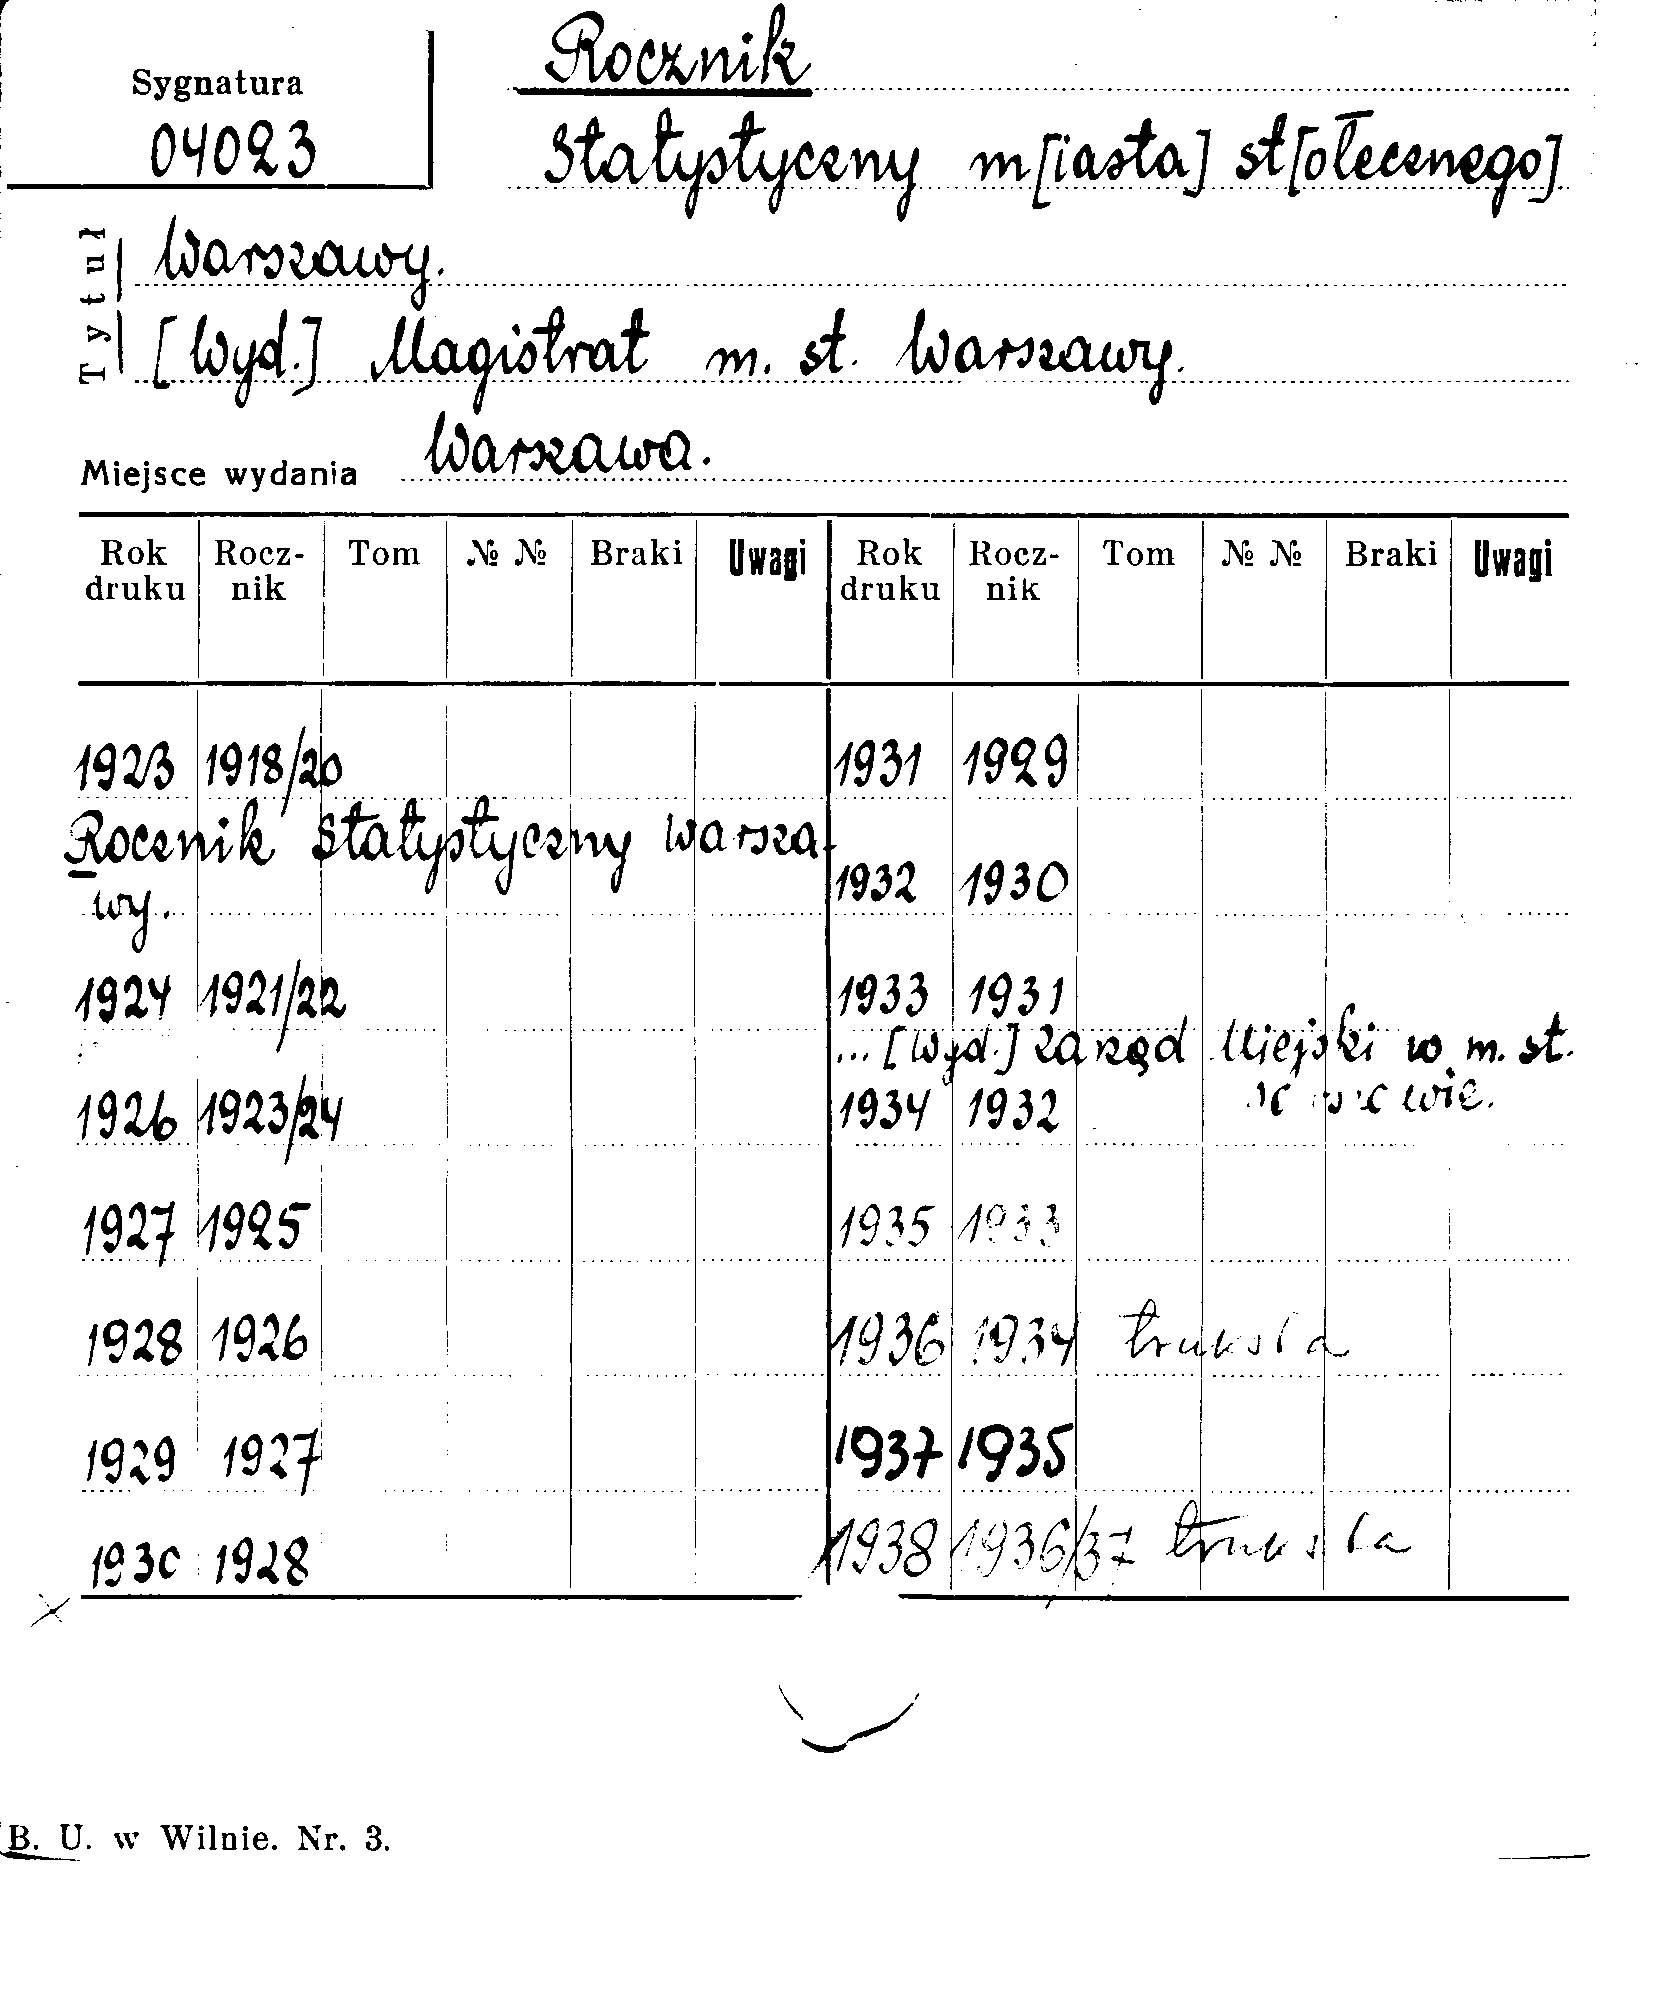 Sygnatura
04023
Rocznik
Statystyczny m[iasta] st[ołecznego]
Tytuł
Warszawy.
[Wyd.] Magistrat m. st. Warszawy.
Miejsce wydania Warszawa.
Rok druku Rocz-nik Tom № № Braki Uwagi Rok druku Rocz-nik Tom № № Braki Uwagi
1923 1918/20
Rocznik Statystyczny Warsza-
wy.
1924 1921/22
1926 1923/24
1927 1925
1928 1926
1929 1927
1930 1928
1931 1929
1932 1930
1933 1931
... [Wyd.] Zarząd Miejski w m. st.
1934 1932
1935 1933
1936 1934
1937 1935
1938 1936/37
B. U. w Wilnie. Nr. 3.